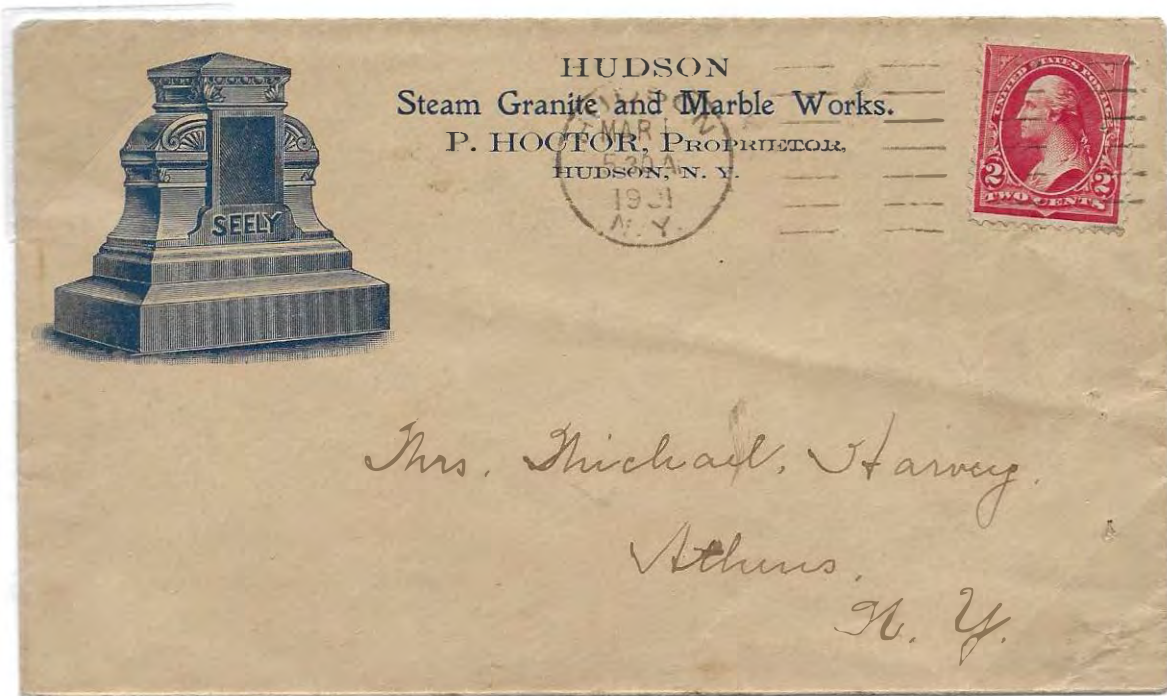 HUDSON
Steam Granite and Marble Works.
P. HOCTOR, PROPRIETOR,
HUDSON, N. Y.
HUDSON
MAR 1
5 30 A
1901
N.Y.
UNITED STATES POSTAGE
2 2
TWO CENTS
SEELY
Mrs. Michael. Harvey.
Athens.
N. Y.